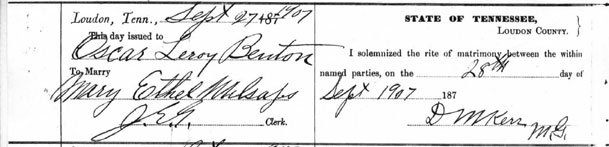 Loudon, Tenn., Sept 27 187 1907
This day issued to
Oscar Leroy Benton
To Marry
Mary Ethel Milsaps
J.E.G. Clerk.
STATE OF TENNESSEE,
LOUDON COUNTY.
I solemnized the rite of matrimony between the within
named parties, on the 28th day of
Sept 1907 187
D M Kerr M.G.